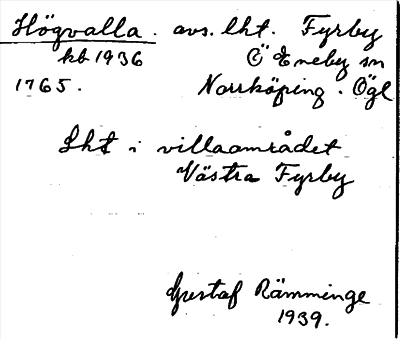 Högvalla. avs. lht. Fyrby
kb 1936 Ö Eneby sn
1765. Norrköping. Ögl
Lht i villaområdet
Västra Fyrby
Gustaf Rämminge
1939.